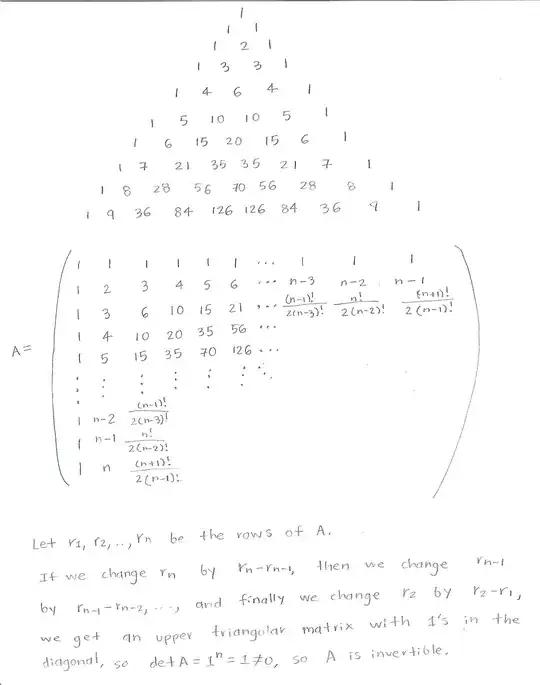 1
1 1
1 2 1
1 3 3 1
1 4 6 4 1
1 5 10 10 5 1
1 6 15 20 15 6 1
1 7 21 35 35 21 7 1
1 8 28 56 70 56 28 8 1
1 9 36 84 126 126 84 36 9 1
1 1 1 1 1 1 ... 1 1 1
1 2 3 4 5 6 ... n-3 n-2 n-1
1 3 6 10 15 21 ... (n-1)!/2(n-3)! n!/2(n-2)! (n+1)!/2(n-1)!
1 4 10 20 35 56 ...
A= 1 5 15 35 70 126 ...
⋮ ⋮ ⋮ ⋮ ⋮ ⋮ ⋱
1 n-2 (n-1)!/2(n-3)!
1 n-1 n!/2(n-2)!
1 n (n+1)!/2(n-1)!
Let r1, r2,..,rn be the rows of A.
If we change rn by rn-rn-1, then we change rn-1
by rn-1-rn-2, ..., and finally we change r2 by r2-r1,
we get an upper triangular matrix with 1's in the
diagonal, so detA=1ⁿ=1≠0, so A is invertible.